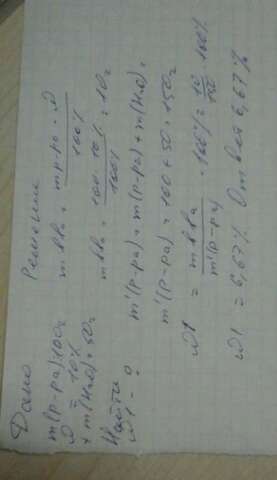 Дано
m(р-ра)100г
ω = 10%
+ m(H₂O)=50г
Найти
ω1 - ?
Решение
m вва = mр-ра · ω / 100%
m вва = 100 · 10% / 100% = 10г
m¹(р-ра) = m(р-ра) + m(H₂O) =
m¹(р-ра) = 100 + 50 = 150г
ω1 = m вва / m¹(р-ра) · 100% = 10 / 150 · 100%
ω1 = 6,67% Ответ 6,67%